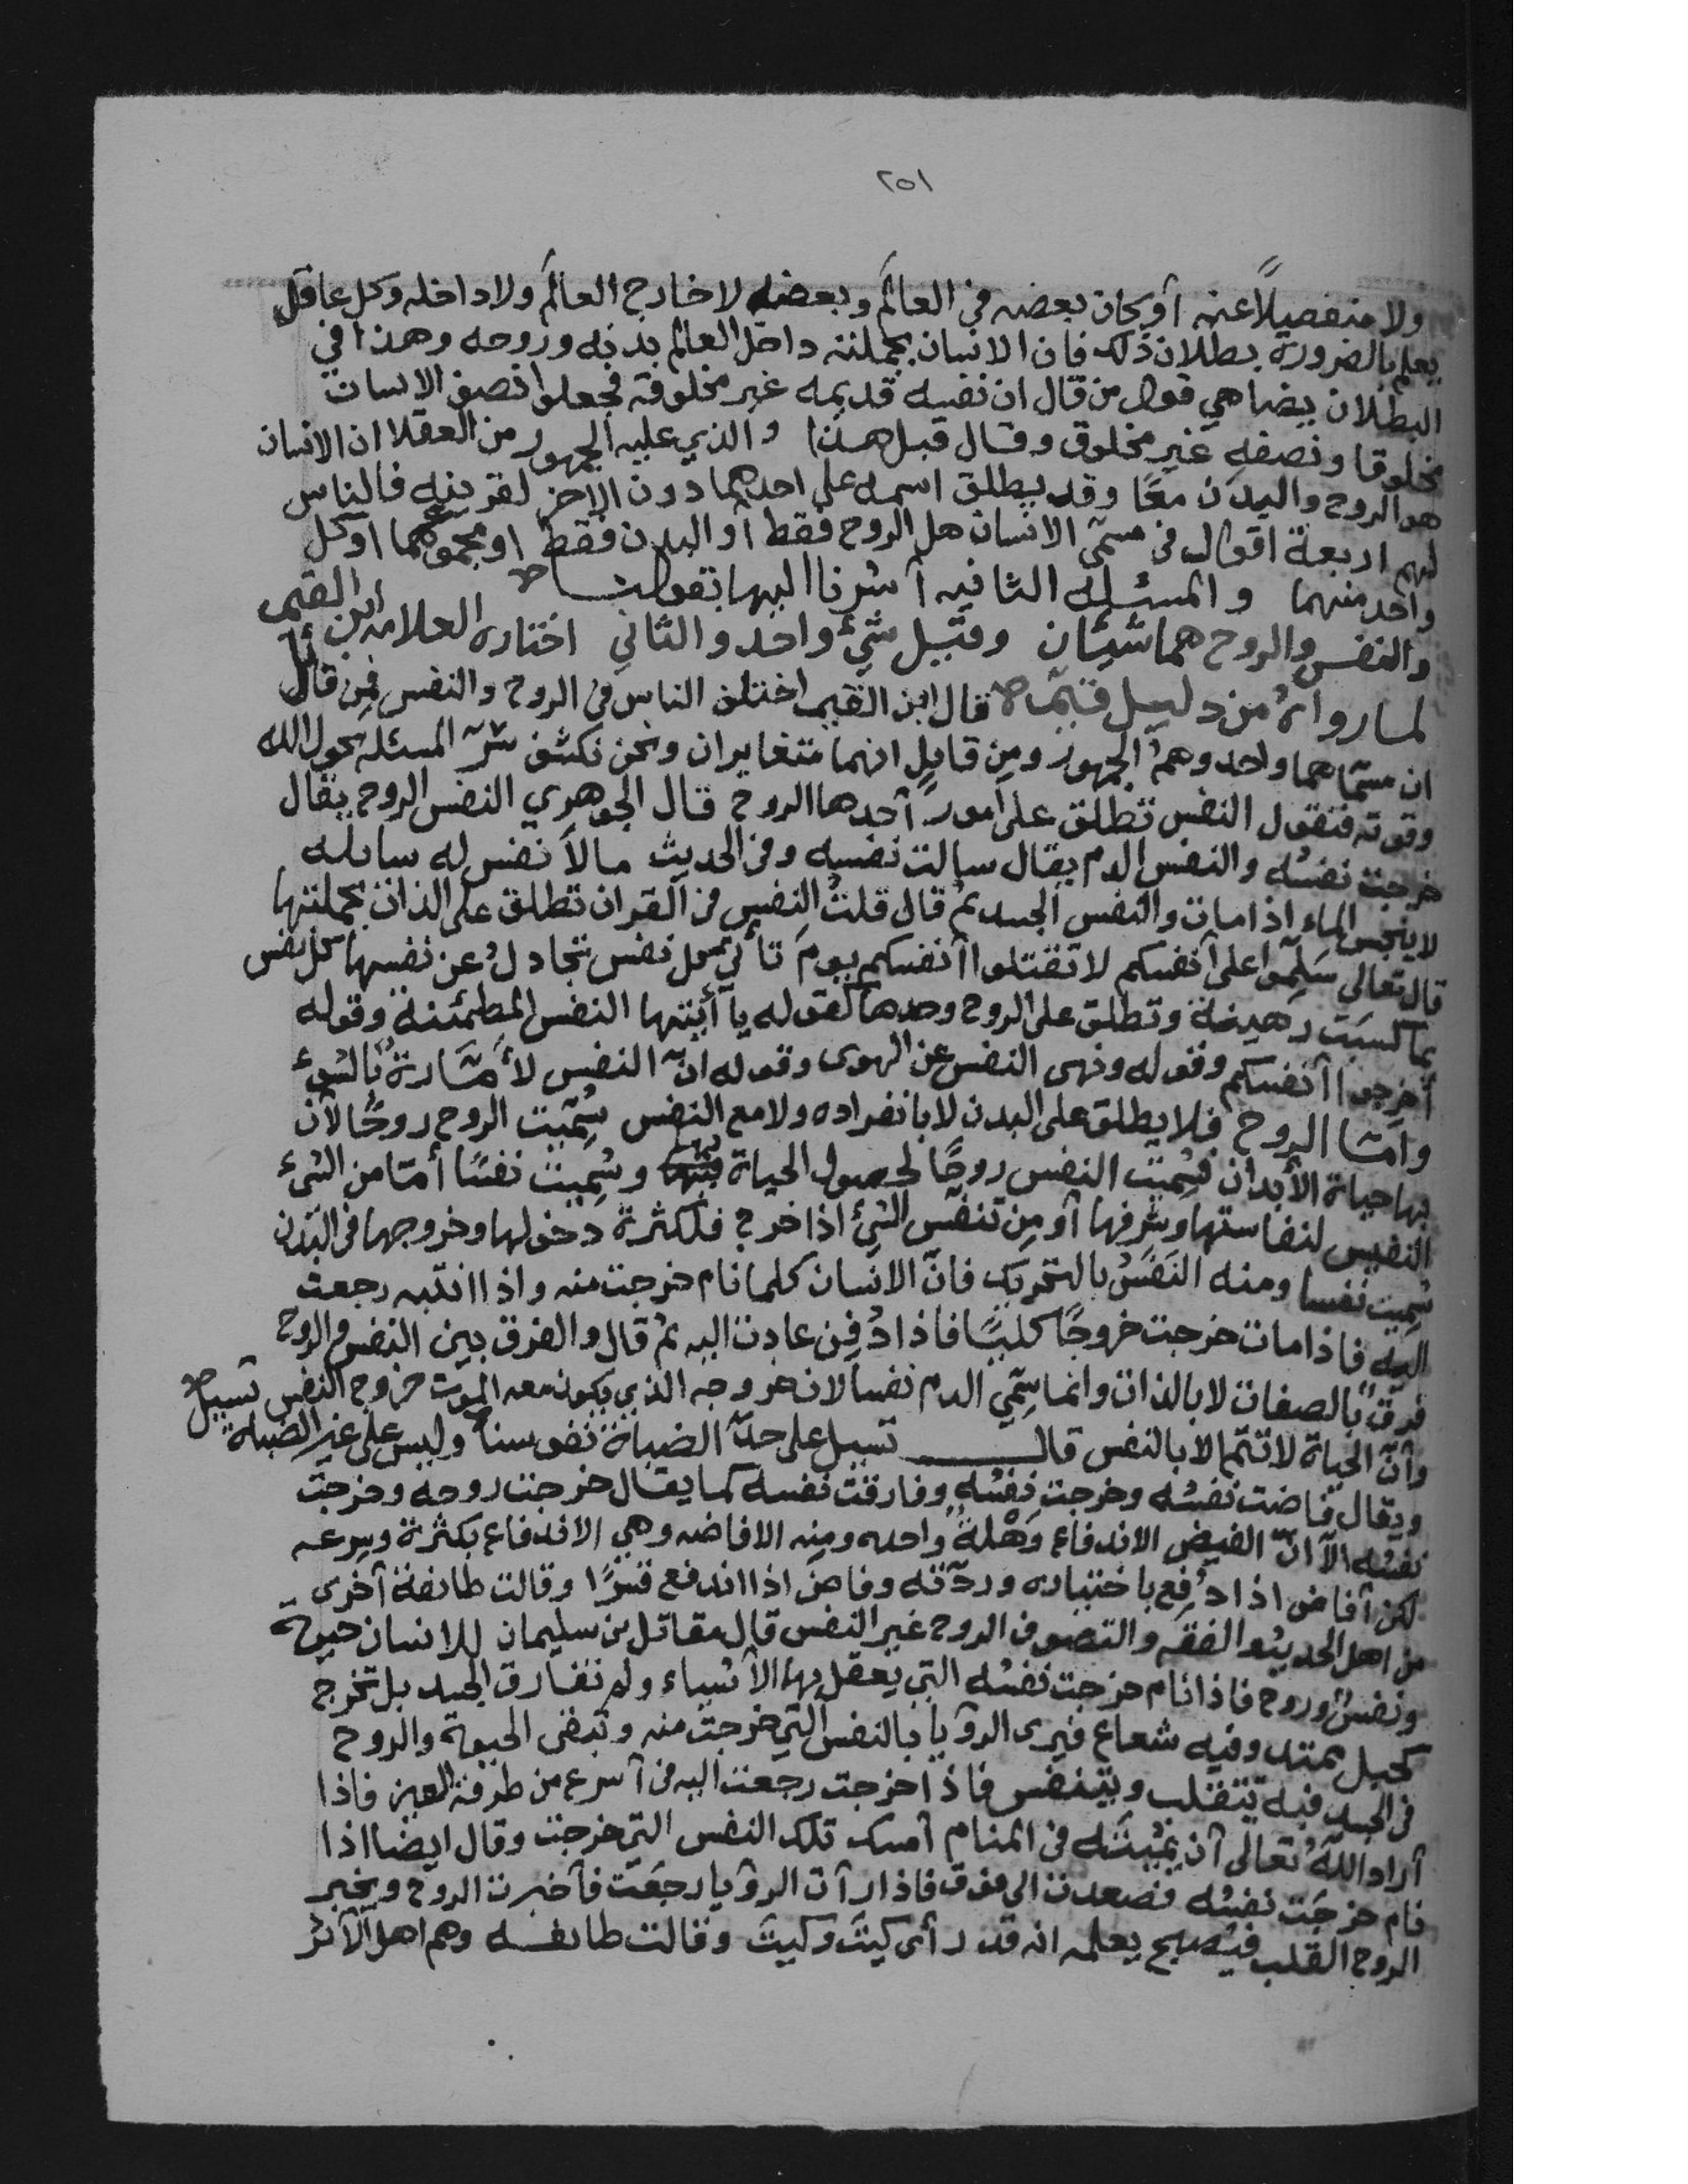 ٢٥١
ولا منفصلاً عنه أو كان بعضه في العالم وبعضه لا خارج العالم ولا داخله وكل عاقل
يعلم بالضرورة بطلان ذلك فان الانسان بجملته داخل العالم بدنه وروحه وهذا في
البطلان يضاهي قول من قال ان نفسه قديمه غير مخلوقة فجعلوا نصف الانسان
مخلوقا ونصفه غير مخلوق وقال قبل هذا والذي عليه الجمهور من العقلا ان الانسان
هو الروح والبدن معًا وقد يطلق اسمه على احدهما دون الاخر لقرينه فالناس
لهم اربعة اقوال في مسمّى الانسان هل الروح فقط أو البدن فقط او مجموعهما او كل
واحد منهما والمسئله الثانيه أشرنا اليها بقولنا ص
والنفس والروح هما شيئان وقيل شيء واحد والثاني اختاره العلامه ابن القيم
لما رواه من دليل قيّم ص قال ابن القيم اختلف الناس في الروح والنفس فمن قائل
ان مسمّاهما واحد وهم الجمهور ومن قايل انهما متغايران ونحن نكشف سرّ المسئله بحول الله
وقوته فنقول النفس تطلق على أمور أحدها الروح قال الجوهري النفس الروح يقال
خرجت نفسُه والنفس الدم يقال سالت نفسه وفي الحديث مالاَ نفس له سائله
لا ينجس الماء اذا مات والنفس الجسد ثم قال قلتُ النفس في القران تطلق على الذات بجملتها
قال تعالى سَلِّموا على أنفسكم لا تقتلوا أنفسكم يومَ تأتي كل نفس تجادلُ عن نفسها كل نفس
بما كسبَت رهينة وتطلق على الروح وحدها كقوله يا أيتها النفس المطمئنة وقوله
أخرجوا أنفسكم وقوله ونهى النفس عن الهوى وقوله انّ النفس لأمّارةٌ بالسُوءِ
وامّا الروح فلا يطلق على البدن لا بانفراده ولا مع النفس سُمّيت الروح روحًا لأن
بها حياة الأبدان فسُمّيت النفس روحًا لحصول الحياة بها وسُمّيت نفسًا أمّا من الشيء
النفيس لنفاستها وشرفها أو مِن تنفّس الشيء اذا خرج فلكثرة دخولها وخروجها في البدن
سُمّيت نفسا ومنه النَفَسُ بالتحريك فانّ الانسان كلما نام خرجت منه واذا انتبه رجعت
اليه فاذا مات خرجت خروجًا كليًا فاذا دُفِن عادت اليه ثم قال والفرق بين النفس والروح
فرقٌ بالصفات لا بالذات وانما سمّي الدم نفسا لان خروجه الذي يكون معه الموت خروج النفس
وأنّ الحياة لا تتم الا بالنفس قال تسيل على حدّ الضباة نفوسنا وليس على غير الضباة تسيل ص
ويقال فاضت نفسُه وخرجت نفسُه وفارقت نفسه كما يقال خرجت روحه وخرجت
نفسُه الاّ انّ الفيض الاندفاع وَهْلةً واحده ومنه الافاضه وهي الاندفاع بكثرة وسرعه
لكن أفاض اذا دُفع باختياره وردّته وفاض اذا اندفع قسْرًا وقالت طائفة أخرى
من اهل الحديث والفقه والتصوف الروح غير النفس قال مقاتل بن سليمان للانسان حيوة
ونفسٌ وروح فاذا نام خرجت نفسُه التي يعقل بها الأشياء ولم تفارق الجسد بل تخرج
كحبل ممتد وفيه شعاع فيرى الرؤيا بالنفس التي خرجت منه وتبقى الحيوة والروح
في الجسد فبه يتقلب ويتنفس فاذا خرجت رجعت اليه في أسرع من طرفة العين فاذا
أراد اللهُ تعالى أن يُمِيتَه في المنام أمسك تلك النفس التي خرجت وقال ايضا اذا
نام خرجَت نفسُه فصعدت الى فوق فاذا رأت الرؤيا رجعَت فأخبرت الروح ويخبر
الروح القلب فيُصبح يعلم انه قد رأى كيتَ وكيتَ وقالت طائفه وهم اهل الأثر